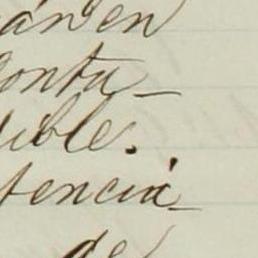 án en
conta-
sible.
tencia
de